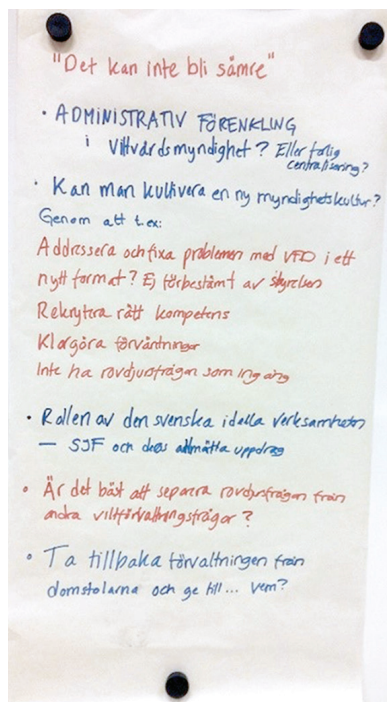 "Det kan inte bli sämre"
• ADMINISTRATIV FÖRENKLING
i Viltvårdsmyndighet? Eller farlig
centralisering?
• Kan man kultivera en ny myndighetskultur?
Genom att t.ex:
Addressera och fixa problemen med VFD i ett
nytt format? Ej förbestämt av styrelsen
Rekrytera rätt kompetens
Klargöra förväntningar
Inte ha rovdjursfrågan som ingång
• Rollen av den svenska idella verksamheten
— SJF och deras allmäna uppdrag
• Är det bäst att separera rovdjursfrågan från
andra viltförvaltningsfrågor?
• Ta tillbaka förvaltningen från
domstolarna och ge till... vem?